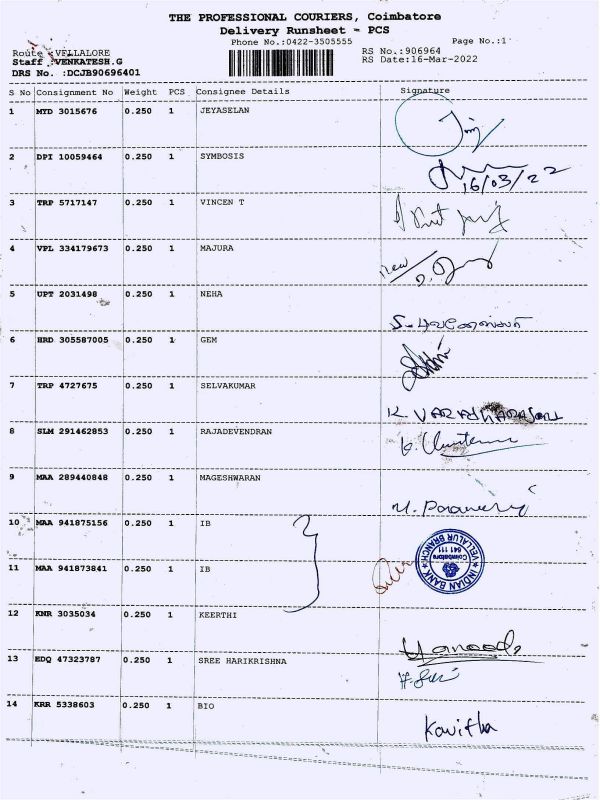 THE PROFESSIONAL COURIERS, Coimbatore
Delivery Runsheet - PCS
Phone No.:0422-3505555
Page No.:1
Route :VELLALORE
Staff :VENKATESH.G
DRS No. :DCJB90696401
RS No.:906964
RS Date:16-Mar-2022
S No Consignment No Weight PCS Consignee Details Signature
1 MTD 3015676 0.250 1 JEYASELAN
2 DPI 10059464 0.250 1 SYMBOSIS
16/03/22
3 TRP 5717147 0.250 1 VINCEN T
4 VPL 334179673 0.250 1 MAJURA
5 UPT 2031498 0.250 1 NEHA
6 HRD 305587005 0.250 1 GEM
7 TRP 4727675 0.250 1 SELVAKUMAR
8 SLM 291462853 0.250 1 RAJADEVENDRAN
9 MAA 289440848 0.250 1 MAGESHWARAN
10 MAA 941875156 0.250 1 IB
11 MAA 941873841 0.250 1 IB
INDIAN BANK
VELLALUR BRANCH
Coimbatore
641 111
12 KNR 3035034 0.250 1 KEERTHI
13 EDQ 47323787 0.250 1 SREE HARIKRISHNA
14 KRR 5338603 0.250 1 BIO
Kavitha